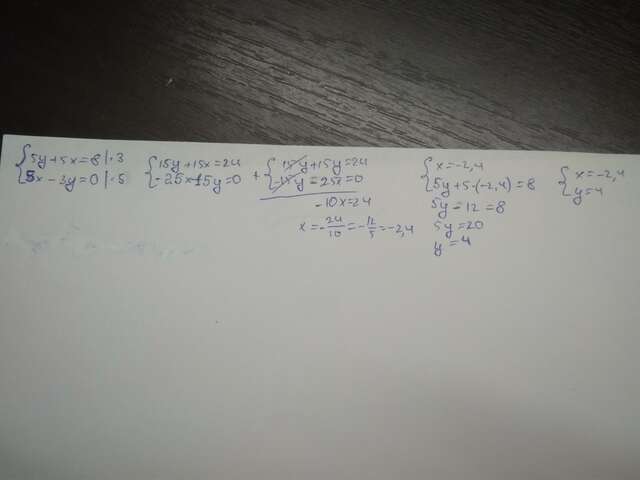 {5y+5x=8|·3
{5x-3y=0|·5
{15y+15x=24
{-25x-15y=0
+ {15y+15y=24
{-15y-25x=0
-10x=24
x=-24/10=-12/5=-2,4
{x=-2,4
{5y+5·(-2,4)=8
5y-12=8
5y=20
y=4
{x=-2,4
{y=4